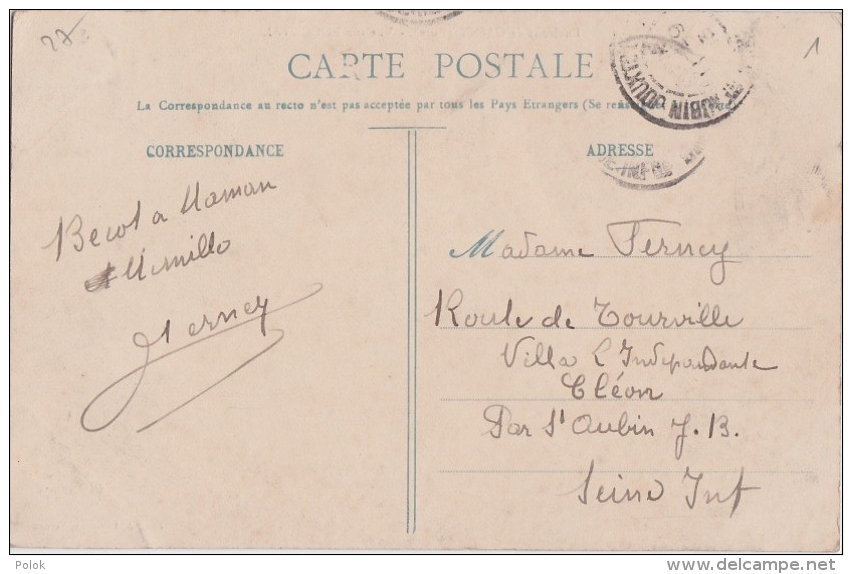 27
1
CARTE POSTALE
La Correspondance au recto n'est pas acceptée par tous les Pays Etrangers (Se
CORRESPONDANCE
ADRESSE
Becot a Maman
Mimillo
Ferney
Madame Ferney
Route de Tourville
Villa L'Indépendante
Cléon
Par St Aubin J. B.
Seine Inf
Polok
delcampe.net